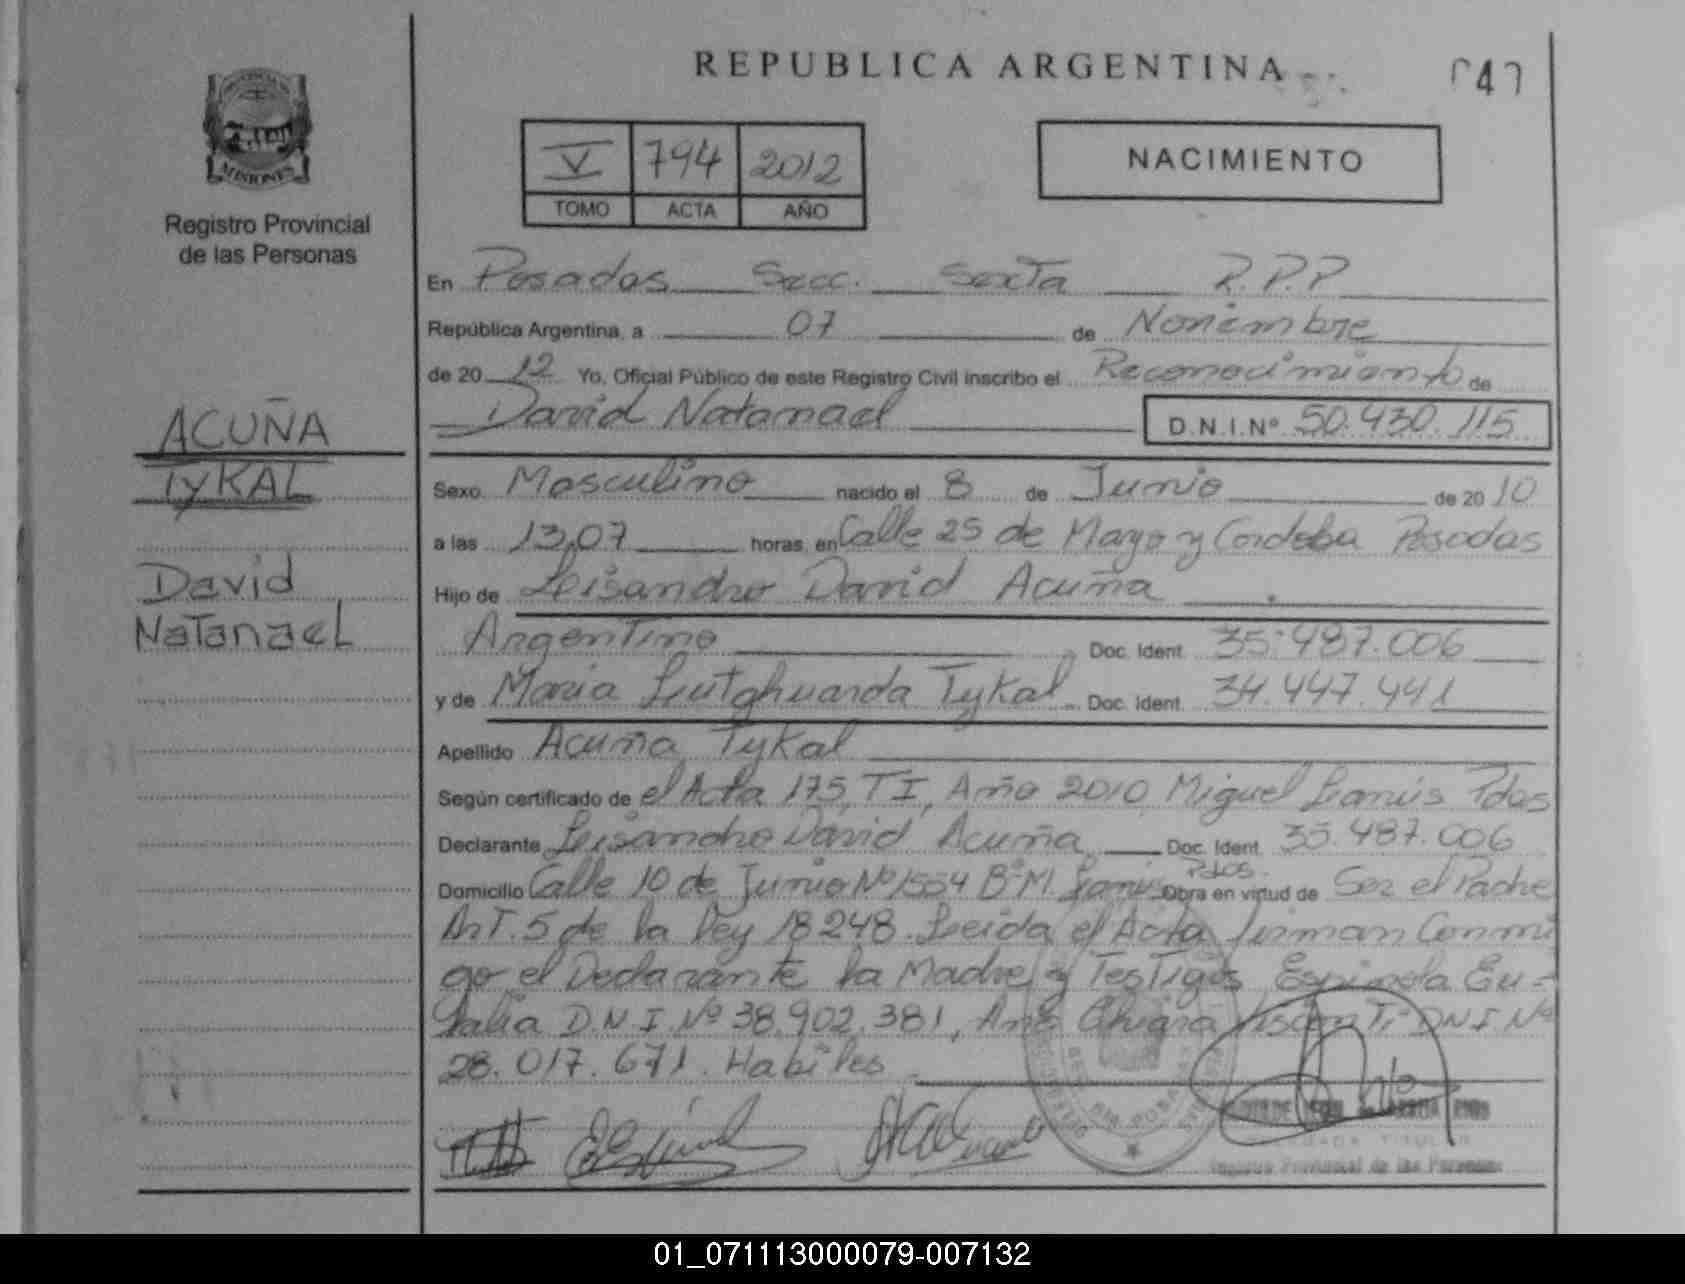 REPUBLICA ARGENTINA
047
MISIONES
Registro Provincial
de las Personas
V 794 2012
TOMO ACTA AÑO
NACIMIENTO
En Posadas Secc. Sexta R.P.P
República Argentina, a 07 de Noviembre
de 20 12 Yo, Oficial Público de este Registro Civil inscribo el Reconocimiento de
David Natanael D.N.I.Nº 50.430.115
ACUÑA
TyKAL
David
NatanaeL
Sexo Masculino nacido el 8 de Junio de 20 10
a las 13,07 horas, en Calle 25 de Mayo y Cordoba Posadas
Hijo de Leisandro David Acuña
Argentino Doc. Ident. 35.487.006
y de Maria Lutghuarda Tykal Doc. Ident. 34.447.441
Apellido Acuña Tykal
Según certificado de el Acta 175, T I, Año 2010 Miguel Lanús Pdas
Declarante Leisandro David Acuña Doc. Ident. 35.487.006
Domicilio Calle 10 de Junio Nº 1554 Bº M. Lanús Pdas. Obra en virtud de Ser el Padre
Art. 5 de la Ley 18248. Leida el Acta firman Conmi
go el Declarante la Madre y Testigos Espinola Eu-
lalia D.N.I. Nº 38.902.381, Ana Chiara Visconti DNI Nº
28.017.671. Habiles
Registro Provincial de las Personas
01_071113000079-007132